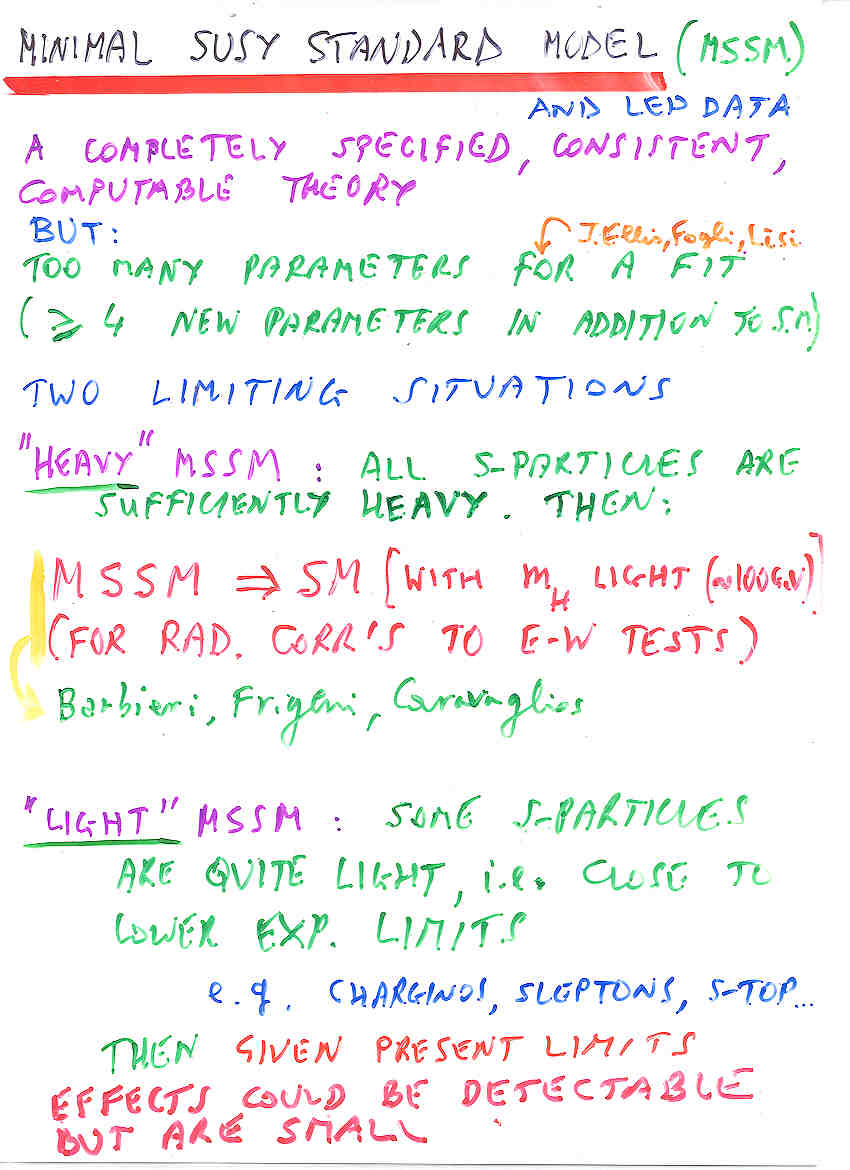 MINIMAL SUSY STANDARD MODEL (MSSM)
AND LEP DATA
A COMPLETELY SPECIFIED, CONSISTENT,
COMPUTABLE THEORY
BUT:
J. Ellis, Fogli, Lisi
TOO MANY PARAMETERS FOR A FIT
(≥ 4 NEW PARAMETERS IN ADDITION TO S.M)
TWO LIMITING SITUATIONS
"HEAVY" MSSM : ALL S-PARTICLES ARE
SUFFICIENTLY HEAVY. THEN:
MSSM ⇒ SM [WITH m_H LIGHT (~100GeV)]
(FOR RAD. CORR'S TO E-W TESTS)
Barbieri, Frigeni, Caravaglios
"LIGHT" MSSM : SOME S-PARTICLES
ARE QUITE LIGHT, i.e. CLOSE TO
LOWER EXP. LIMITS
e.g. CHARGINOS, SLEPTONS, S-TOP...
THEN GIVEN PRESENT LIMITS
EFFECTS COULD BE DETECTABLE
BUT ARE SMALL